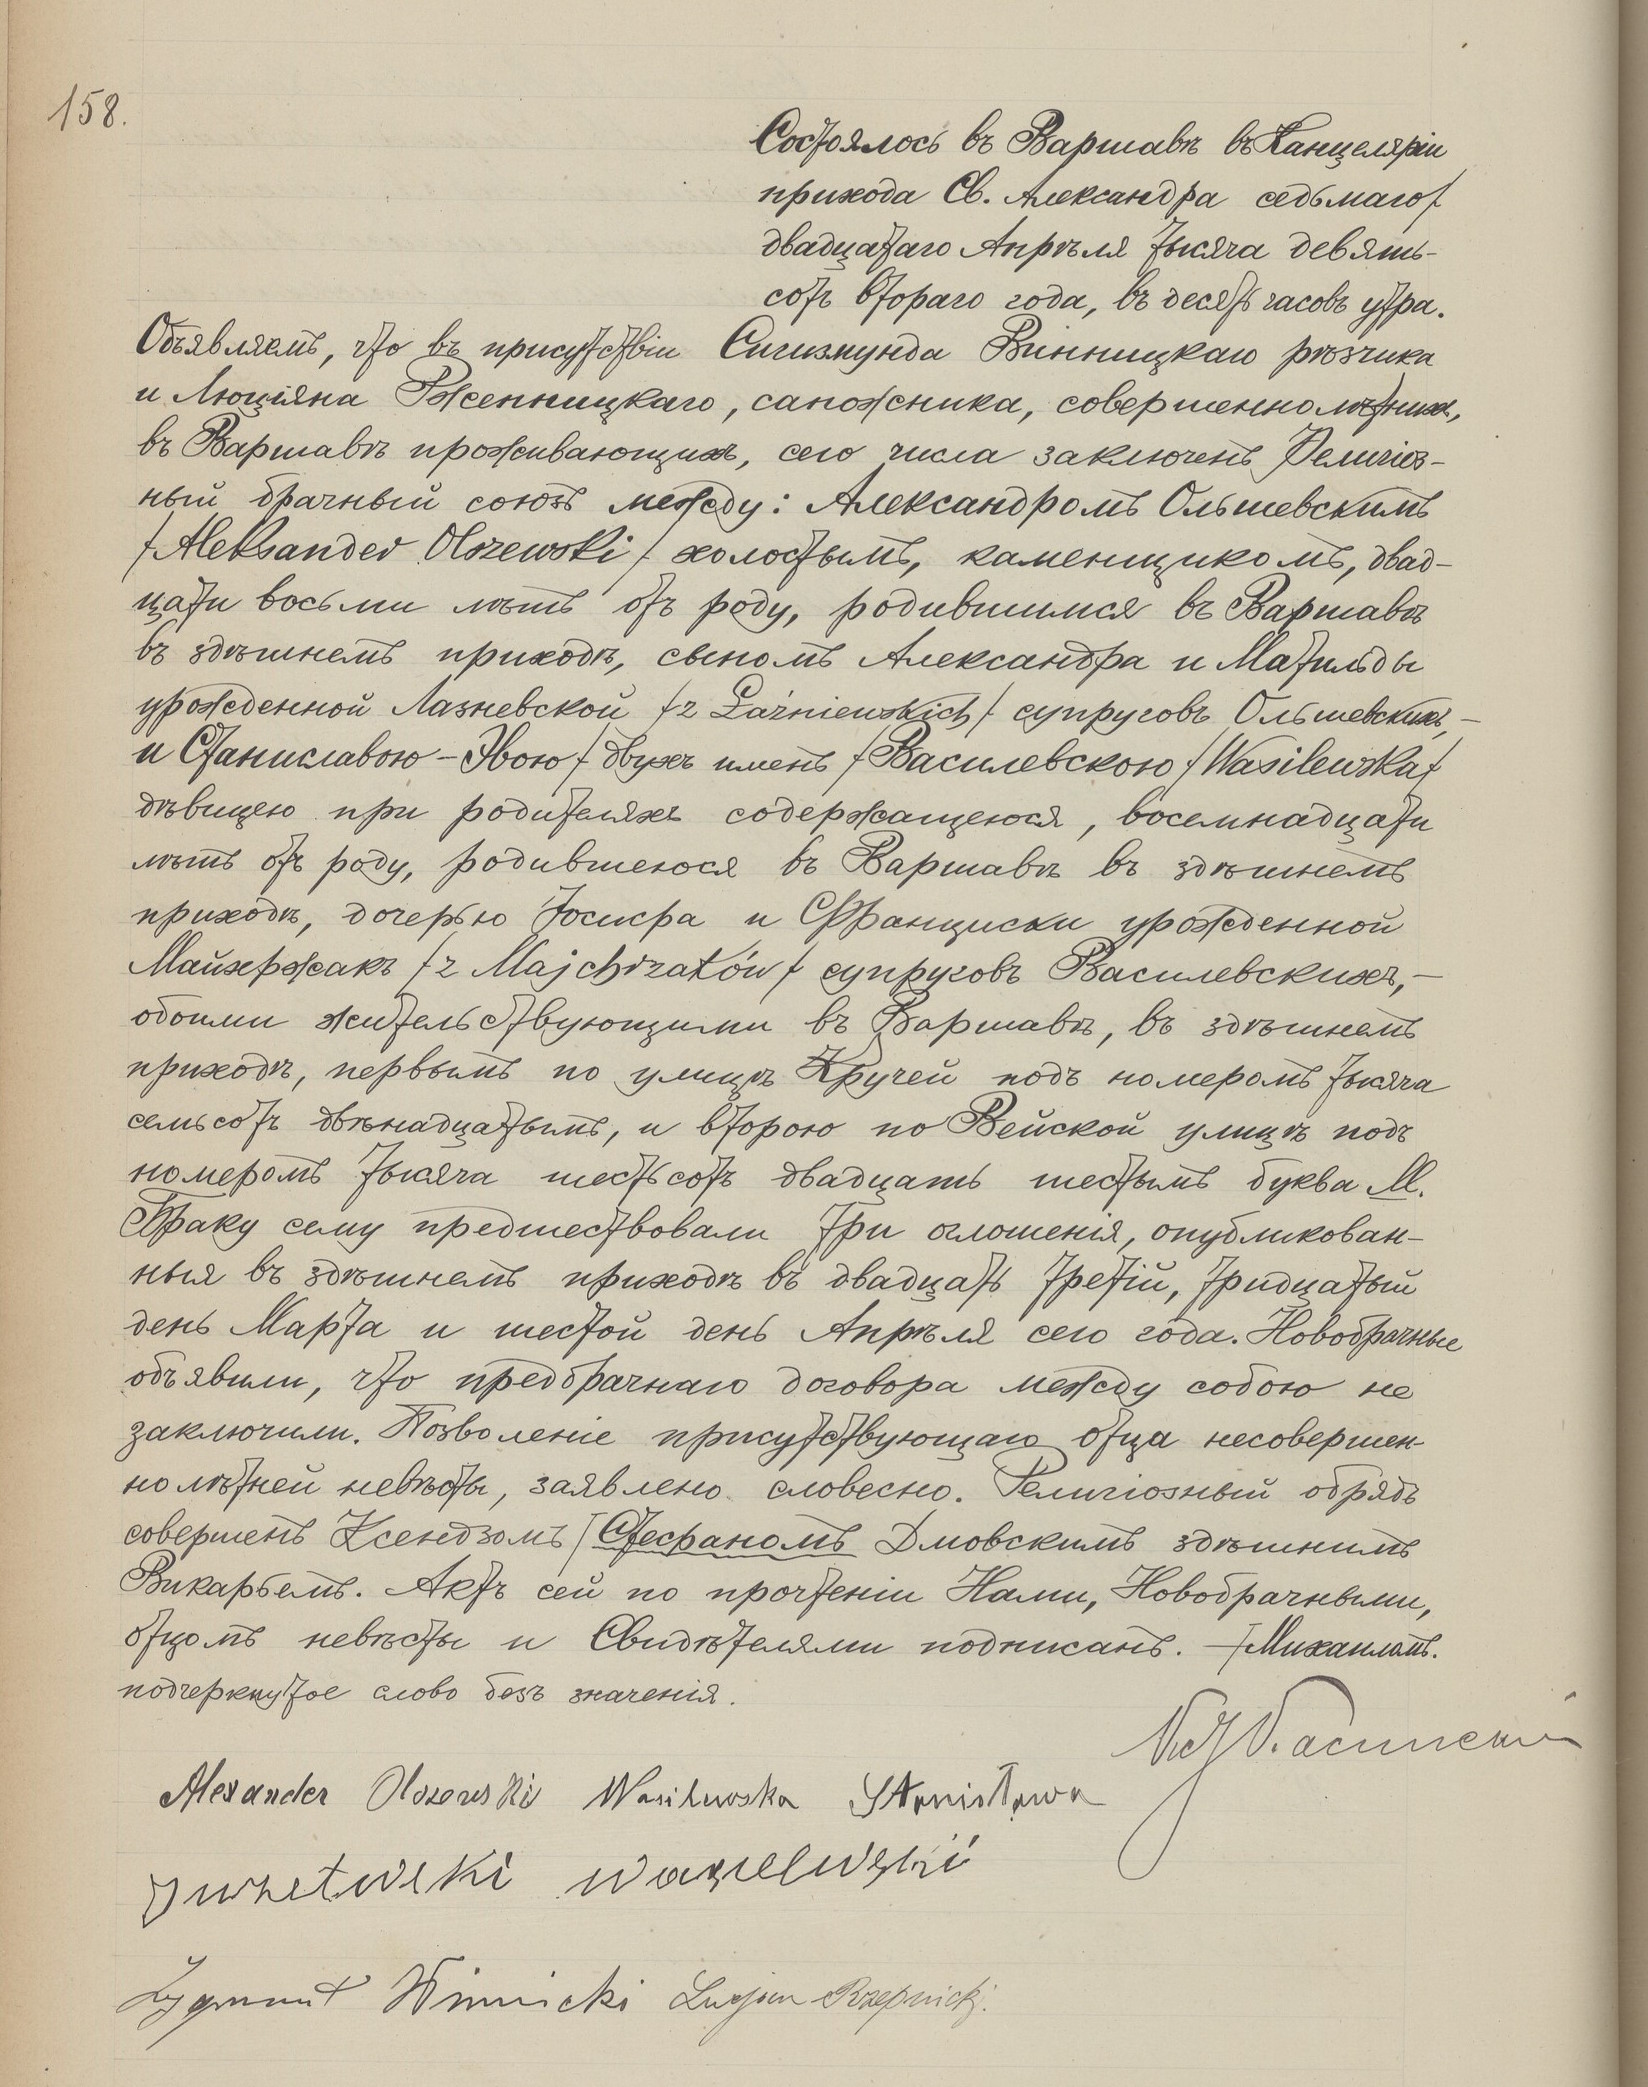 158.
Состоялось въ Варшавѣ въ Канцеляріи
прихода Св. Александра седьмаго/
двадцатаго Апрѣля тысяча девять-
сотъ втораго года, въ десять часовъ утра.
Объявляемъ, что въ присутствіи Сигизмунда Винницкаго рѣзчика
и Люціяна Рженницкаго, сапожника, совершеннолѣтнихъ,
въ Варшавѣ проживающихъ, сего числа заключенъ Религіоз-
ный брачный союзъ между: Александромъ Ольшевскимъ
/Aleksander Olszewski/ холостымъ, каменщикомъ, двад-
цати восьми лѣтъ отъ роду, родившимся въ Варшавѣ
въ здѣшнемъ приходѣ, сыномъ Александра и Матильды
урожденной Лазневской /z Łaźniewskich/ супруговъ Ольшевскихъ,-
и Станиславою-Эвою/ двухъ именъ /Василевскою /Wasilewska/
дѣвицею при родителяхъ содержащеюся, восемнадцати
лѣтъ отъ роду, родившеюся въ Варшавѣ въ здѣшнемъ
приходѣ, дочерью Іосифа и Франциски урожденной
Майхржакъ /z Majchrzaków/ супруговъ Василевскихъ,-
обоими жительствующими въ Варшавѣ, въ здѣшнемъ
приходѣ, первымъ по улицѣ Кручей подъ номеромъ тысяча
семьсотъ двѣнадцатымъ, и второю по Вейской улицѣ подъ
номеромъ тысяча шестьсотъ двадцать шестымъ буква М.
Браку сему предшествовали три оглошенія, опубликован-
ныя въ здѣшнемъ приходѣ въ двадцать третій, тридцатый
день Марта и шестой день Апрѣля сего года. Новобрачные
объявили, что предбрачнаго договора между собою не
заключили. Позволеніе присутствующаго отца несовершен-
нолѣтней невѣсты, заявлено словесно. Религіозный обрядъ
совершенъ Ксендзомъ / Стефаномъ Дмовскимъ здѣшнимъ
Викарьемъ. Актъ сей по прочтеніи Нами, Новобрачными,
отцомъ невѣсты и Свидѣтелями подписанъ. -/Михаиломъ.
подчеркнутое слово безъ значенія.
Alexander Olszewski Wasilewska Stanisława
Zygmunt Winnicki Lucjan Rzepnicki.